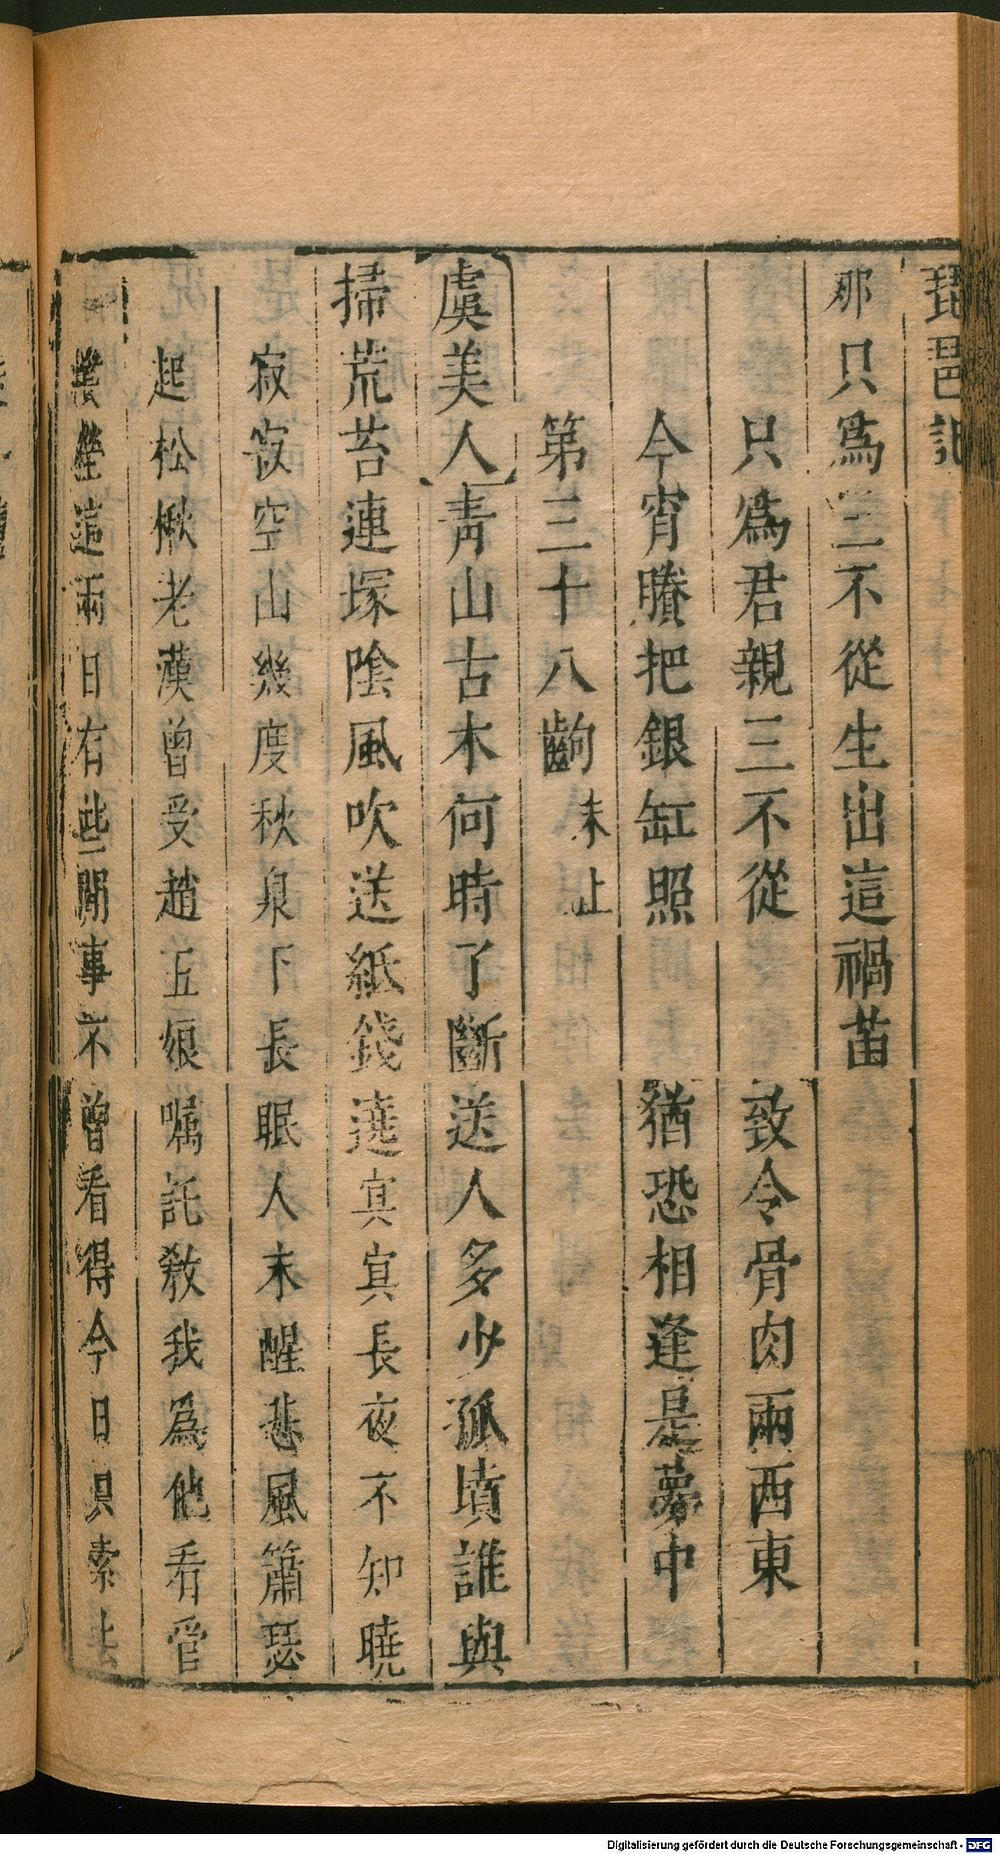 琵琶記
那只爲三不從生出這禍苗
只爲君親三不從　致令骨肉兩西東
今宵賸把銀缸照　猶恐相逢是夢中
第三十八齣　末上
虞美人　青山古木何時了斷送人多少孤墳誰與
掃荒苔連塚陰風吹送紙錢遶　㝠㝠長夜不知曉
寂寂空山幾度秋泉下長眠人未醒悲風蕭瑟
起松楸老漢曾受趙五娘囑託敎我爲他看管
墳塋這兩日有些閒事不曾看得今日只索去
Digitalisierung gefördert durch die Deutsche Forschungsgemeinschaft - DFG